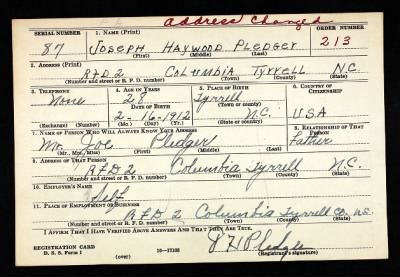 address changed
SERIAL NUMBER 1. NAME (Print) ORDER NUMBER
87 JOSEPH HAYWOOD PLEDGER 213
(First) (Middle) (Last)
2. ADDRESS (Print)
RFD 2 COLUMBIA TYRRELL N.C.
(Number and street or R. F. D. number) (Town) (County) (State)
3. TELEPHONE 4. AGE IN YEARS 5. PLACE OF BIRTH 6. COUNTRY OF CITIZENSHIP
None 28 Tyrrell
DATE OF BIRTH (Town or county)
2-16-1912 N.C. USA
(Exchange) (Number) (Mo.) (Day) (Yr.) (State or country)
7. NAME OF PERSON WHO WILL ALWAYS KNOW YOUR ADDRESS 8. RELATIONSHIP OF THAT PERSON
Mr. Joe Pledger Father
(Mr., Mrs., Miss) (First) (Middle) (Last)
9. ADDRESS OF THAT PERSON
RFD 2 Columbia Tyrrell N.C.
(Number and street or R. F. D. number) (Town) (County) (State)
10. EMPLOYER'S NAME
Self
11. PLACE OF EMPLOYMENT OR BUSINESS
RFD 2 Columbia Tyrrell Co. N.C.
(Number and street or R. F. D. number) (Town) (County) (State)
I AFFIRM THAT I HAVE VERIFIED ABOVE ANSWERS AND THAT THEY ARE TRUE.
REGISTRATION CARD
D. S. S. Form 1 16-17105 (Registrant's signature)
J H Pledger